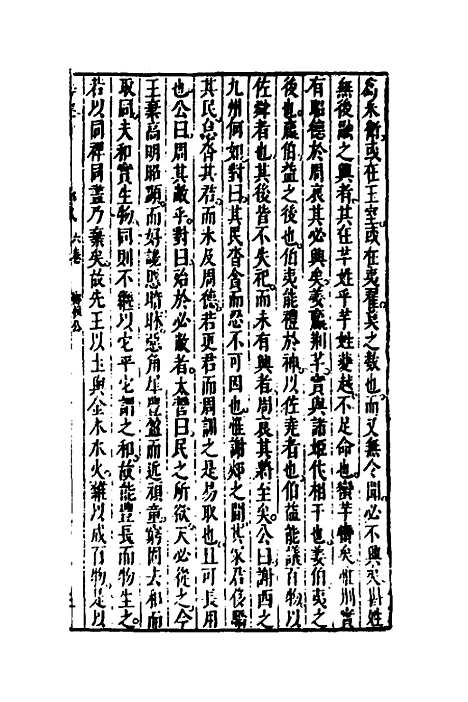 為采衛或在王室或在夷翟莫之數也而又無令聞必不興矣斟姓
無後融之興者其在羋姓乎羋姓夔越不足命也蠻羋蠻矣惟荆實
有昭德於周衰其必興矣姜嬴荆羋實與諸姬代相干也姜伯夷之
後也嬴伯益之後也伯夷能禮於神以佐堯者也伯益能議百物以
佐舜者也其後皆不失祀而未有興者周衰其將至矣公曰謝西之
九州何如對曰其民沓貪而忍不可因也惟謝郟之間其冢君侈驕
其民怠沓其君而未及周德若更君而周訓之是易取也且可長用
也公曰周其敝乎對曰殆於必敝者太誓曰民之所欲天必從之今
王棄高明昭顯而好讒慝暗昧惡角犀豐盈而近頑童窮固去和而
取同夫和實生物同則不繼以它平它謂之和故能豐長而物生之
若以同裨同盡乃棄矣故先王以土與金木水火雜以成百物是以
六卷